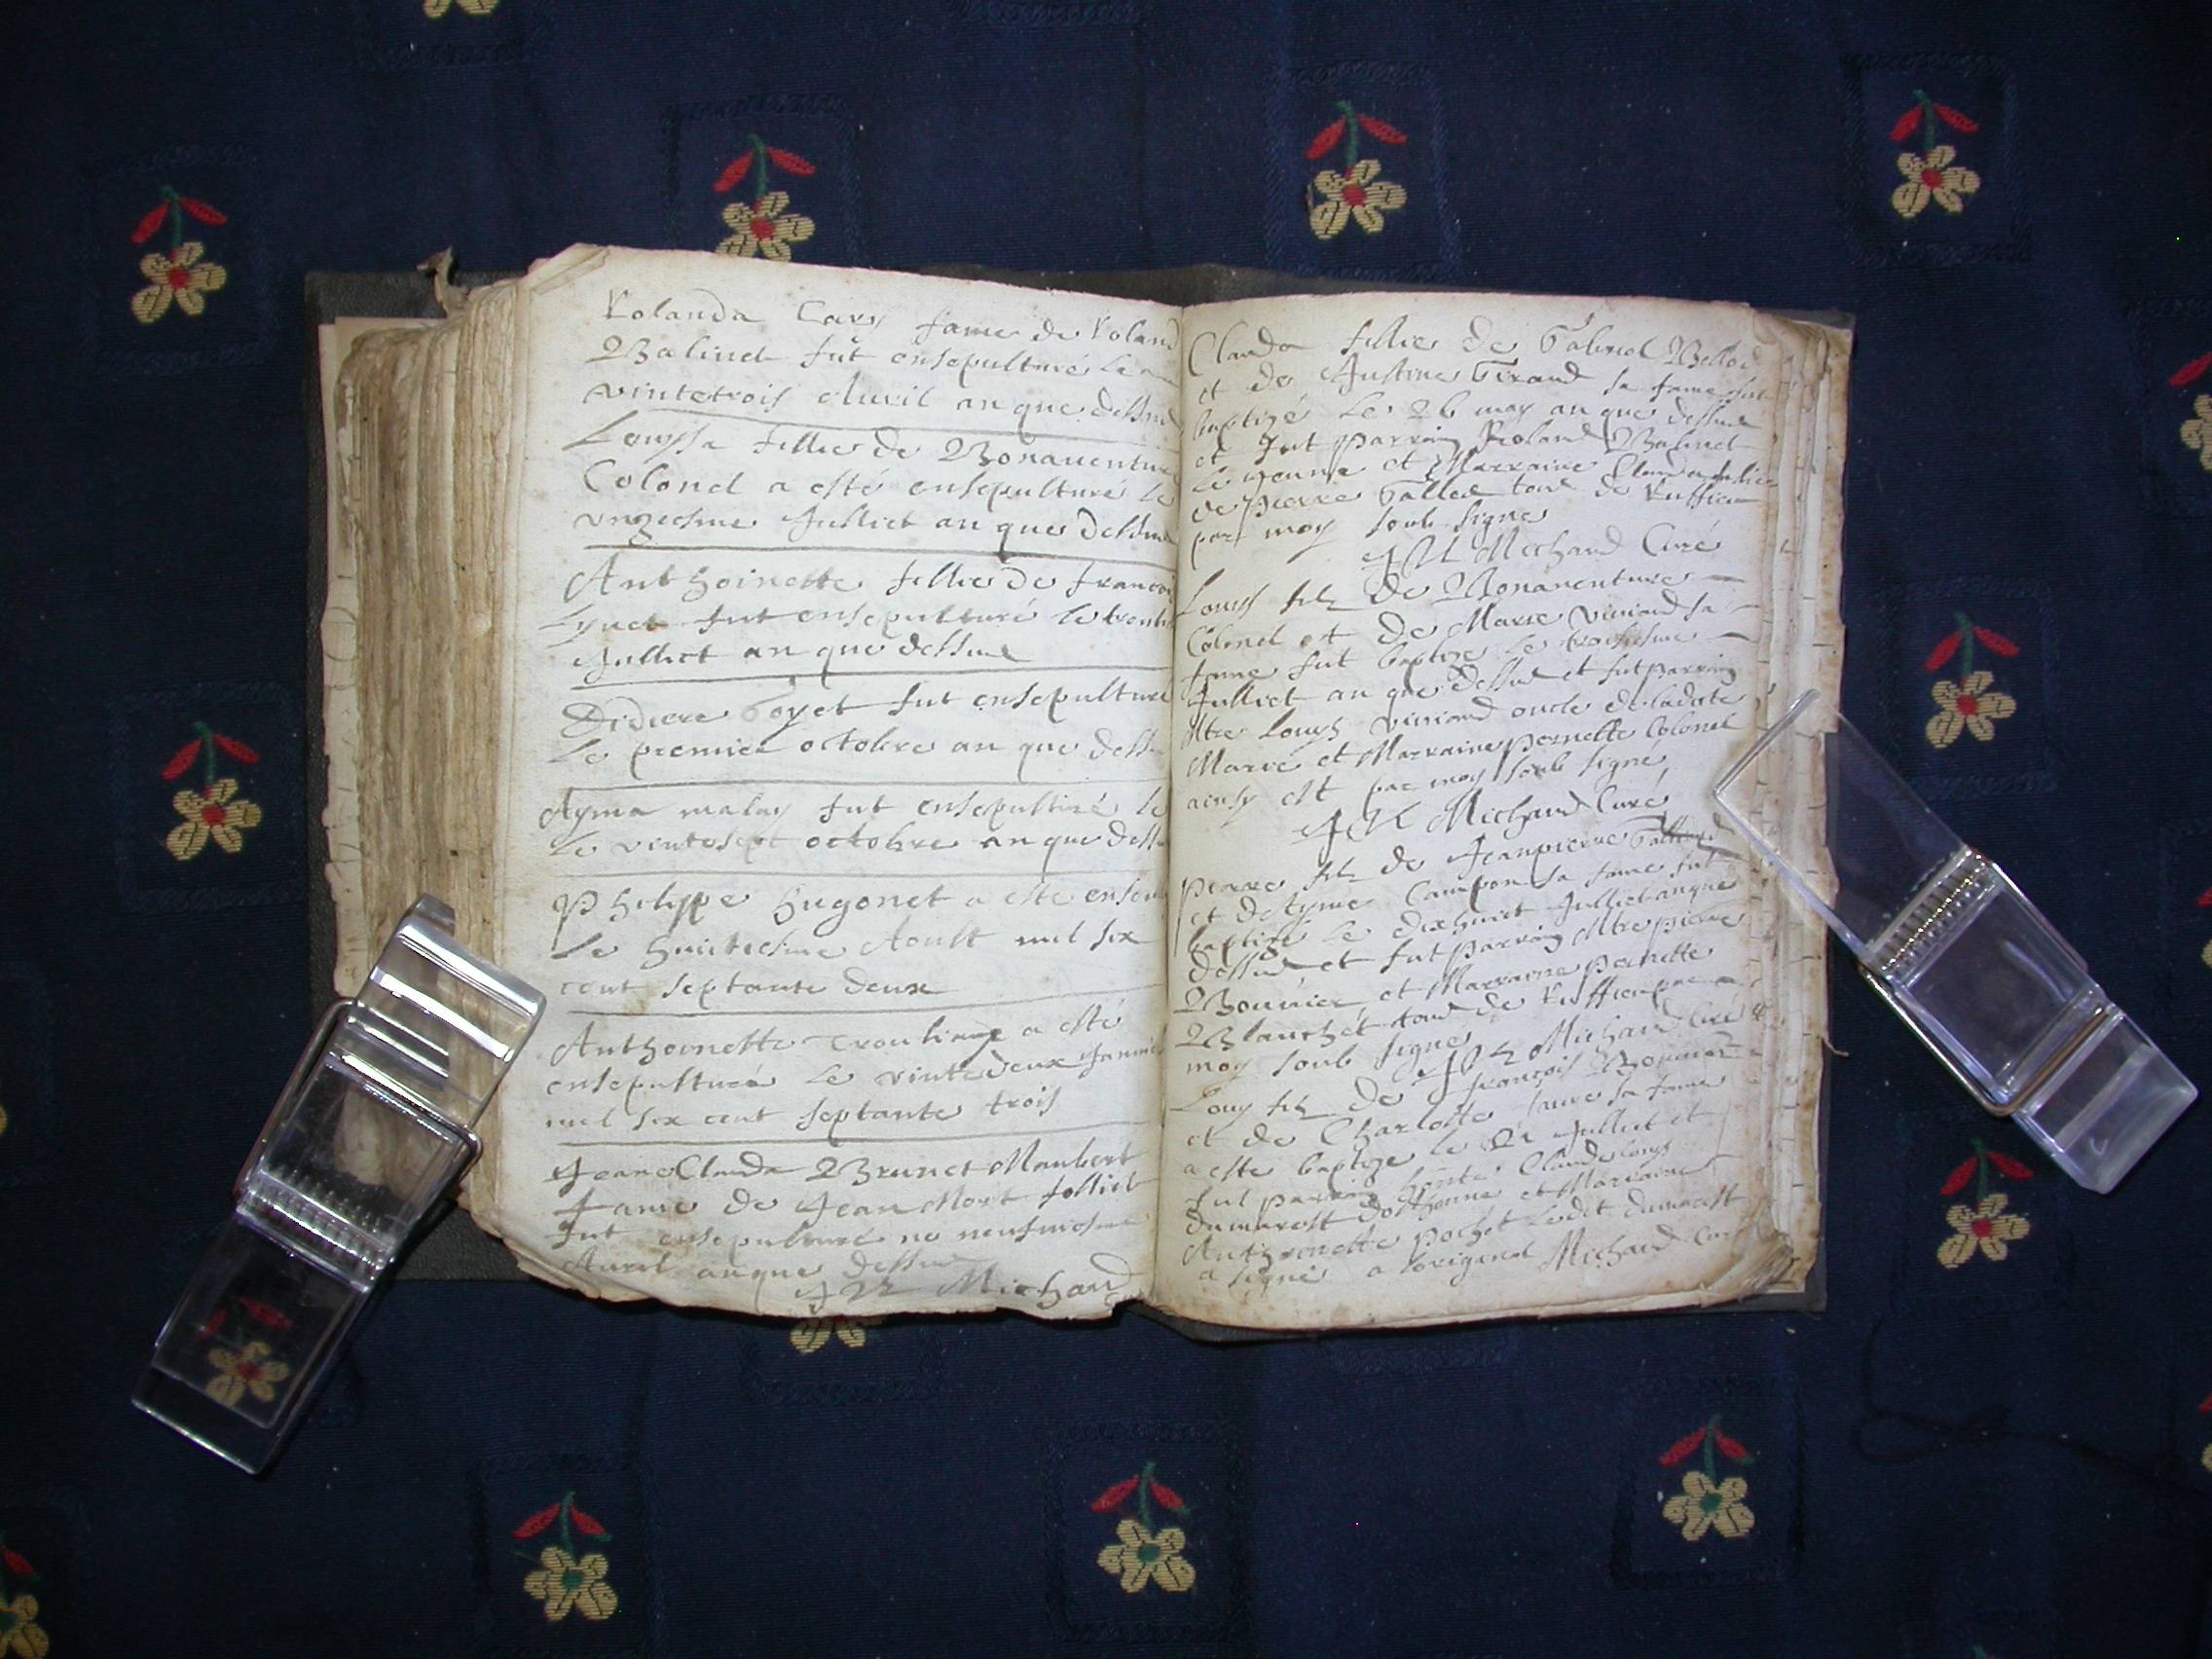 Rolanda Cavy fame de Roland
Balind fut ensepulturé le
vintetrois Auril an que dessus
Louysa fillie de Bonauenture
Colond a esté ensepulturé le
vnziesme Julliet an que dessus
Anthoinette fillie de francois
fut ensepulturé le
Julliet an que dessus
Didiere Goyet fut ensepulturé
le premier octobre an que dessu
Ayma malay fut ensepulturé le
le vintesept octobre an que dess
Philippe hugonet a este
le huictiesme Aoust mil six
cent septante deux
Anthoinette a esté
ensepulturéa le vintedeux Januier
mil six cent septante trois
Jeane Clauda Brunet Maubert
fame de Jean Mort folliet
fut ensepulturé neufuiesme
Auril an que dessus
Michaud
Clauda fillie de Gabriel
et de Justine Giraud sa fame fut
baptizé le 26 may an que dessus
et fut parrain Roland Balind
le jeune et Marraine Clauda fillie
de pierre Gallet tous de Ruffieu
par moy soub signe
Michaud Curé
Louys filz de Bonauenture
Colond et de Marie viuiand sa
fame fut baptize le troisiesme
Julliet an que dessus et fut parrain
Mtre Louys viuiand oncle de ladicte
Marie et Marraine pernette Colond
ainsy est par moy soub signé
Michaud Curé
pierre filz de Jeanpierre
et de Ayme Campon sa fame fut
baptize le dixhuict Julliet an que
dessus et fut parrain Mtre pierre
et Marraine pernette
Blanchet tous de Ruffieu par
moy soub signé Michaud Curé
Louys filz de francois
et de Charlotte sa fame
a este baptize le 21 Julliet et
fut parrain honste Claude Louys
dumarest et Marraine
Anthoinette pochet ledit dumarest
a signé a loriginal Michaud Curé